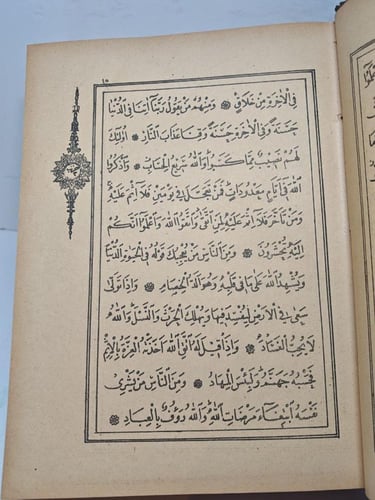 ١٥
فِي الْاٰخِرَةِ مِنْ خَلَاقٍ ❁ وَمِنْهُمْ مَنْ يَقُولُ رَبَّنَا اٰتِنَا فِي الدُّنْيَا
حَسَنَةً وَفِي الْاٰخِرَةِ حَسَنَةً وَقِنَا عَذَابَ النَّارِ ❁ اُولٰئِكَ
لَهُمْ نَصِيبٌ مِمَّا كَسَبُوا وَاللّٰهُ سَرِيعُ الْحِسَابِ ❁ وَاذْكُرُوا
اللّٰهَ فِي اَيَّامٍ مَعْدُودَاتٍ فَمَنْ تَعَجَّلَ فِي يَوْمَيْنِ فَلَا اِثْمَ عَلَيْهِ
وَمَنْ تَاَخَّرَ فَلَا اِثْمَ عَلَيْهِ لِمَنِ اتَّقٰى وَاتَّقُوا اللّٰهَ وَاعْلَمُوا اَنَّكُمْ
اِلَيْهِ تُحْشَرُونَ ❁ وَمِنَ النَّاسِ مَنْ يُعْجِبُكَ قَوْلُهُ فِي الْحَيٰوةِ الدُّنْيَا
وَيُشْهِدُ اللّٰهَ عَلٰى مَا فِي قَلْبِهِ وَهُوَ اَلَدُّ الْخِصَامِ ❁ وَاِذَا تَوَلّٰى
سَعٰى فِي الْاَرْضِ لِيُفْسِدَ فِيهَا وَيُهْلِكَ الْحَرْثَ وَالنَّسْلَ وَاللّٰهُ
لَا يُحِبُّ الْفَسَادَ ❁ وَاِذَا قِيلَ لَهُ اتَّقِ اللّٰهَ اَخَذَتْهُ الْعِزَّةُ بِالْاِثْمِ
فَحَسْبُهُ جَهَنَّمُ وَلَبِئْسَ الْمِهَادُ ❁ وَمِنَ النَّاسِ مَنْ يَشْرِي
نَفْسَهُ ابْتِغَاءَ مَرْضَاتِ اللّٰهِ وَاللّٰهُ رَؤُفٌ بِالْعِبَادِ ❁